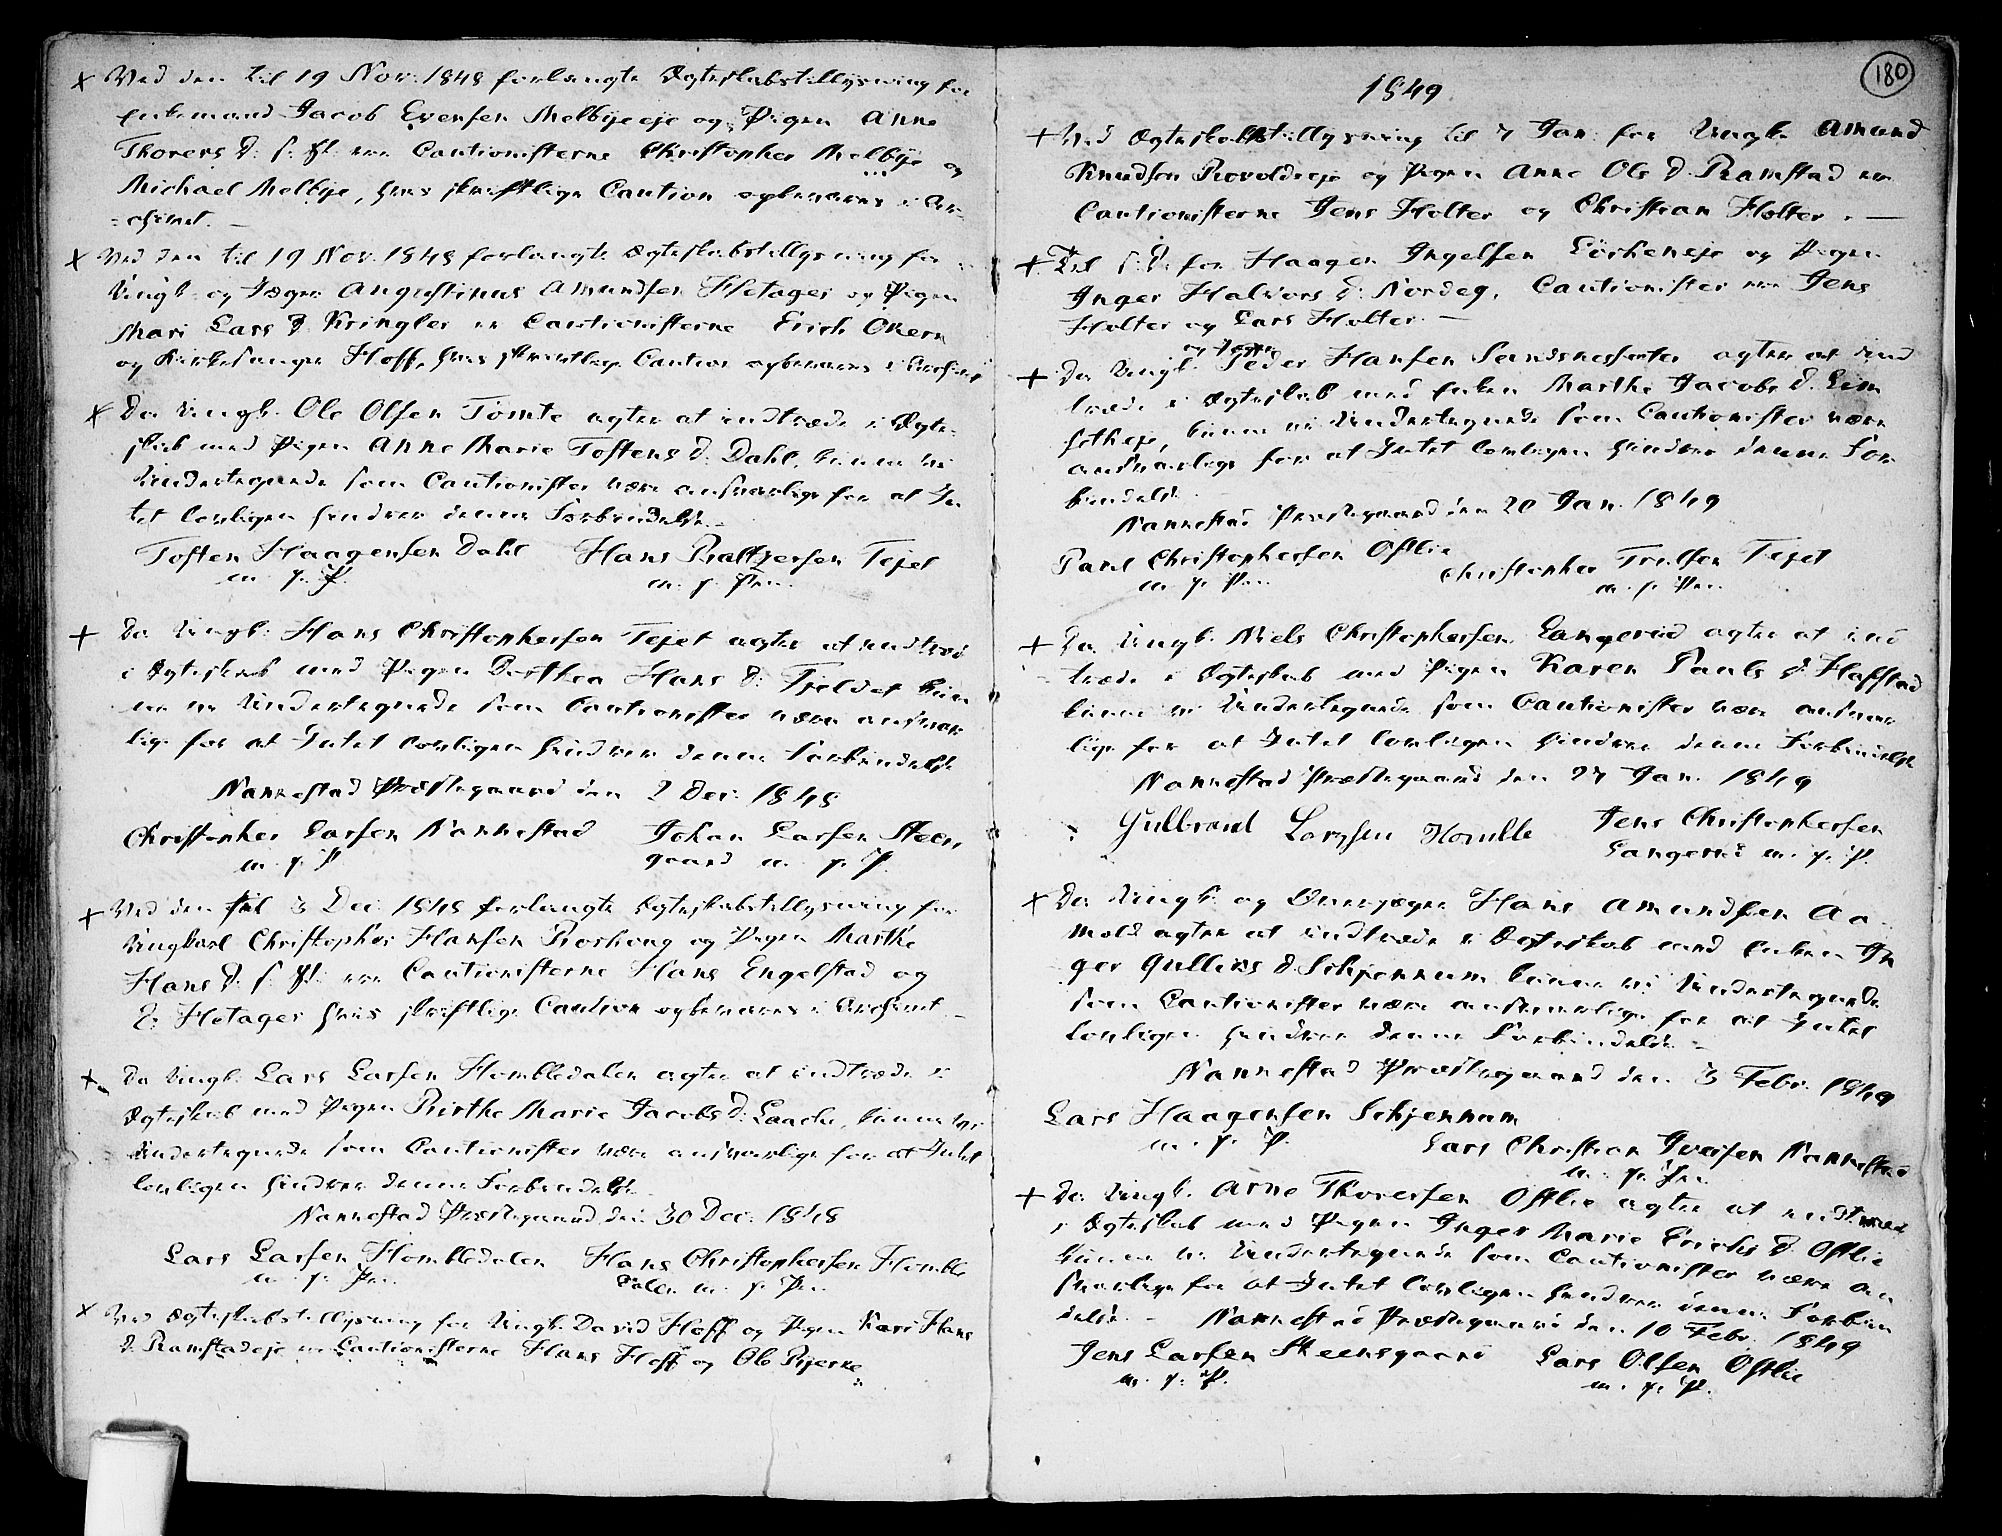 × Ved den til 19 Nov. 1848 forlangte Ægteskabstillysning for
Enkemand Jacob Evensen Melbyeeje og Pigen Anne
Thorers D. s. St. ere Cautionisterne Christopher Melbye og
Michael Melbye, hvis skriftlige Caution opbevares i Ar-
-chivet. –
× Ved den til 19 Nov. 1848 forlangte Ægteskabstillysning for
Ungk. og Jæger Augustinus Amundsen Hotager og Pigen
Mari Lars D. Kringler er Cautionisterne Erich Økern
og Kirkesanger Hoff, hvis skriftlige Caution opbevares i Archivet
× Da Ungk. Ole Olsen Tomte agter at indtræde i Ægte-
skab med Pigen Anne Marie Tostens D. Dahl, kunne vi
Undertegnede som Cautionister være ansvarlige for at In-
tet lovligen hindrer denne Forbindelse. –
Tosten Haagensen Dahl Hans Baltzersen Tejet
m. p. P. m. p. Pen.
+ Da Ungk. Hans Christophersen Tejet agter at indtræde
i Ægteskab med Pigen Dorthea Hans D. Tjeldet kun-
ne vi Undertegnede som Cautionister være ansvar-
lige for at Intet lovligen hindrer denne Forbindelse
Nannestad Præstegaard den 2 Dec. 1848
Christopher Larsen Nannestad Johan Larsen Steens
m. p. P gaard m. p. P.
+ Ved den til 3 Dec. 1848 forlangte Ægteskabstillysning for
Ungkarl Christopher Hansen Roshoug og Pigen Marthe
Hans D. s. St. ere Cautionisterne Hans Engelstad og
E. Hotager hvis skriftlige Caution opbevares i Archivet. –
+ Da Ungk. Lars Larsen Hombledalen agter at indtræde i
Ægteskab med Pigen Birthe Marie Jacobs D. Laache, kunne vi
Undertegnede som Cautionister være ansvarlige for at Intet
lovligen hindrer denne Forbindelse.
Nannestad Præstegaard den 30 Dec. 1848
Lars Larsen Hombledalen Hans Christophersen Homble
m. p. Pen. dalen m. p. Pen
× Ved Ægteskabstillysning for Ungk. David Hoff og Pigen Kari Hans
D. Ramstadeje ere Cautionisterne Hans Hoff og Ole Bjerke
180
1849
+ Ved Ægteskabstillysning til 7 Jan. for Ungk. Amund
Knudsen Rovoldseje og Pigen Anne Ols D. Ramstad ere
Cautionisterne Jens Holter og Christian Holter. –
+ Til s. D. for Haagen Ingelsen Lörheneje og Pigen
Inger Halvors D. Nordeg. Cautionister ere Jens
Holter og Lars Holter. –
og Jæger
+ Da Ungk. Peder Hansen Sandsnesseter agter at ind
træde i Ægteskab med Enken Marthe Jacobs D. Lim
kunne vi Undertegnede som Cautionister være
ansvarlige for at Intet lovligen hindrer denne For
bindelse.
Nannestad Præstegaard den 20 Jan. 1849
Paul Christophersen Østlie Christopher Trulsen Tejet
m. p. Pen. m. p. Pen.
+ Da Ungk. Niels Christophersen Langerud agter at ind
træde i Ægteskab med Pigen Karen Pauls D. Haffstad
kunne vi Undertegnede som Cautionister være ansvar
lige for at Intet lovligen hindrer denne Forbindelse
Nannestad Præstegaard den 27 Jan. 1849
Gulbrand Larssen Homble Jens Christophersen
Langerud m. p. P.
× Da Ungk. og Overjæger Hans Amundsen Aa-
mold agter at indtræde i Ægteskab med Enken In
ger Gullivs D. Schjennum kunne vi Undertegnede
som Cautionister være ansvarlige for at Intet
lovligen hindrer denne Forbindelse. –
Nannestad Præstegaard den 3 Febr. 1849
Lars Haagensen Schjennum
m. p. P. Lars Christian Iversen Nannestad
m. p. Pen.
+ Da Ungk. Arne Thoresen Østlie agter at indtræde
i Ægteskab med Pigen Inger Marie Erichs D. Østlie
kunne vi Undertegnede som Cautionister være an
svarlige for at Intet lovligen hindrer denne Forbin
delse. – Nannestad Præstegaard den 10 Febr. 1849
Jens Larsen Steensgaard Lars Olsen Østlie
m. p. P. m. p. P.